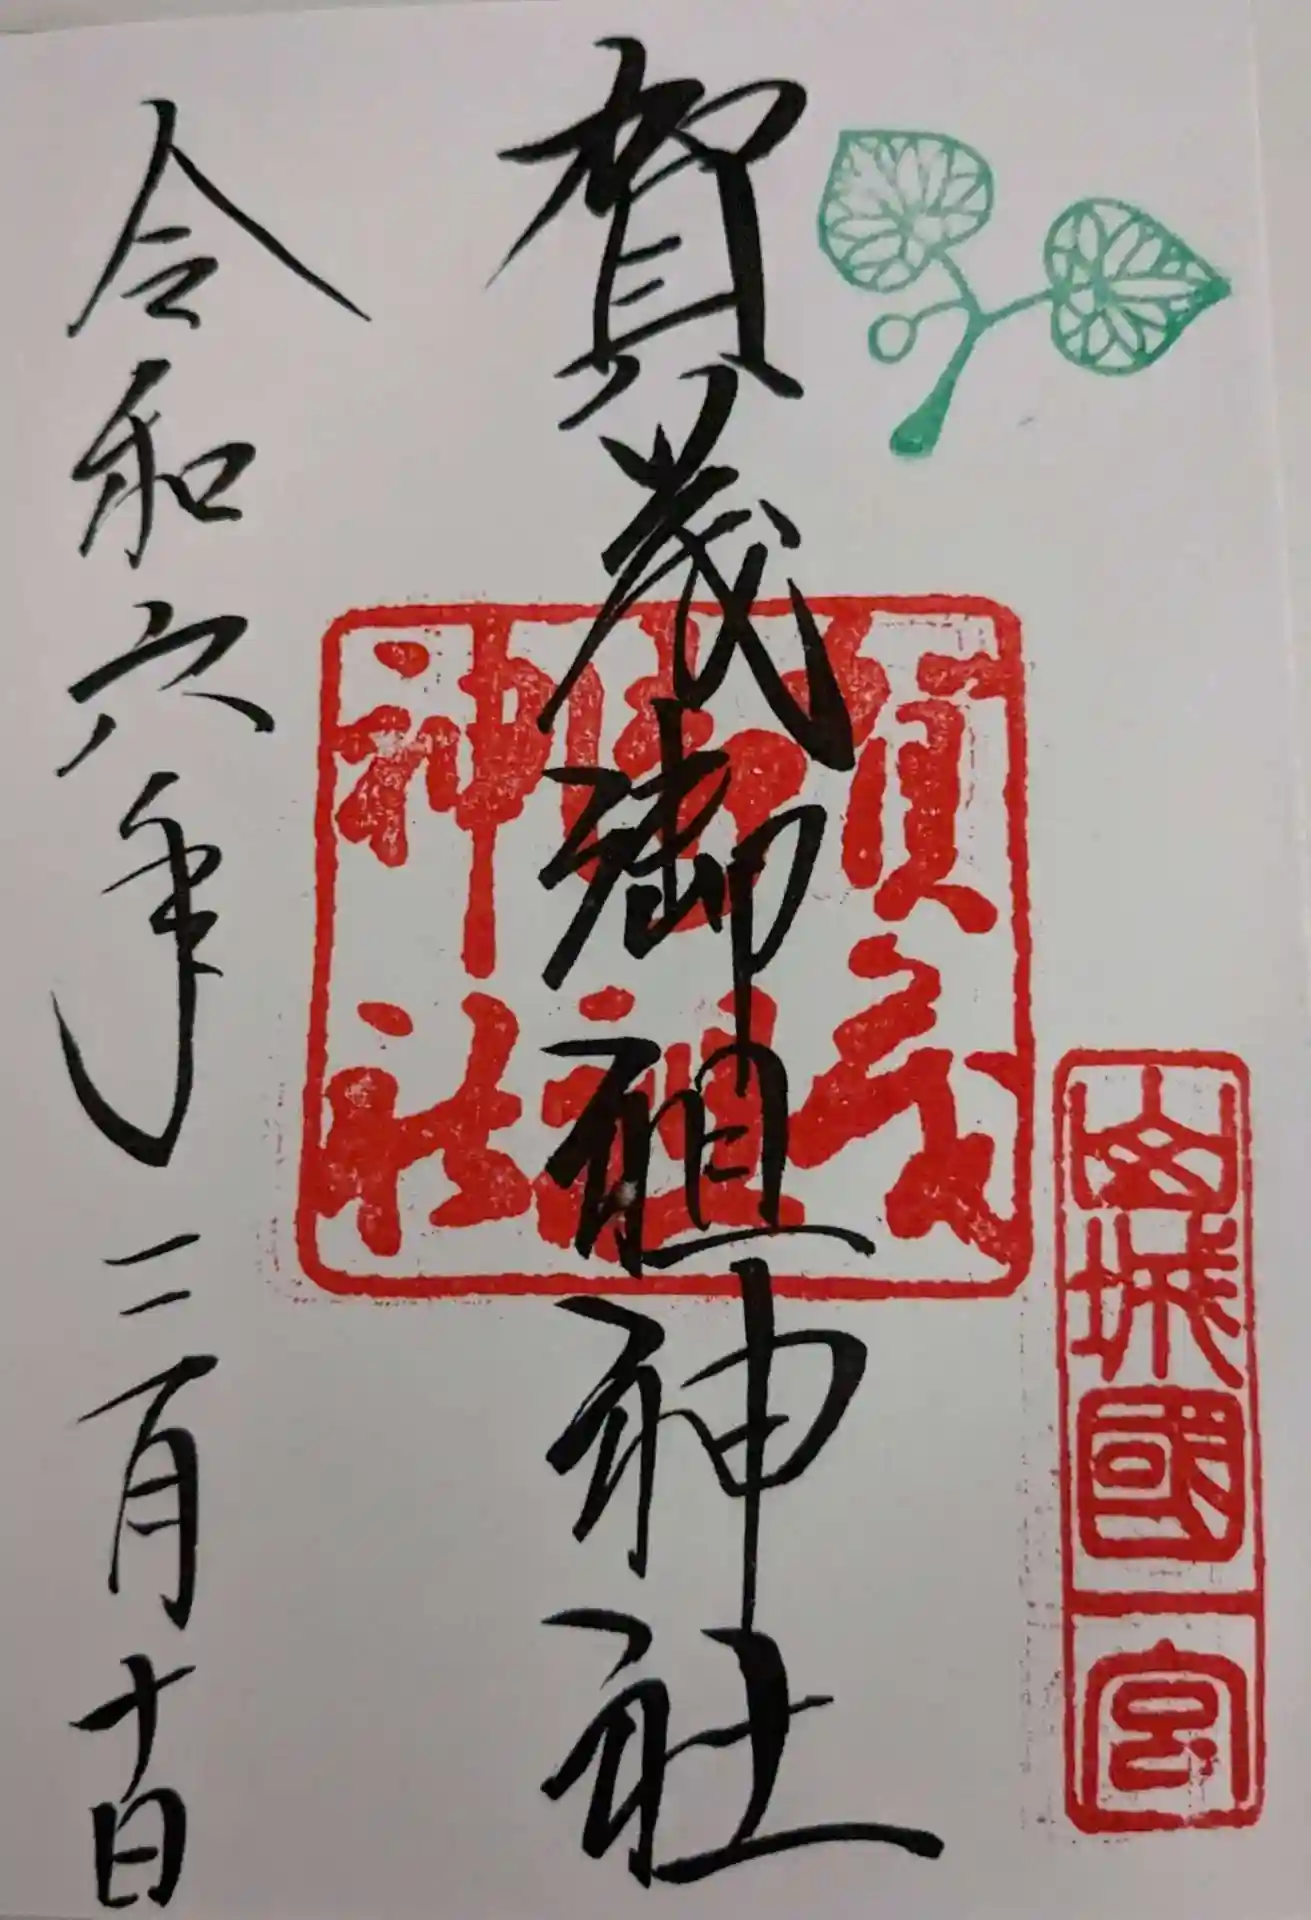 山城國一宮
賀茂御祖神社
賀茂
御祖
神社
令和六年三月十日